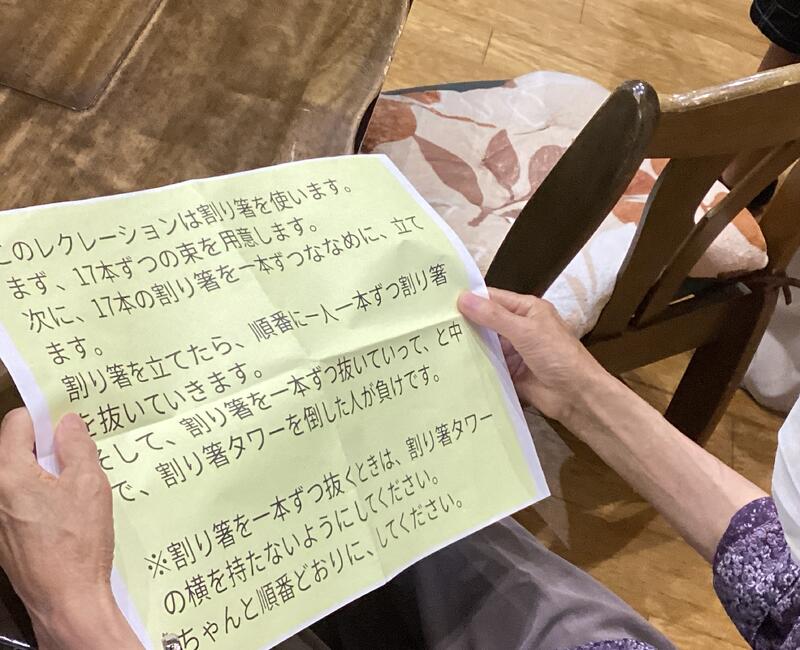 このレクレーションは割り箸を使います。
まず、17本ずつの束を用意します。
次に、17本の割り箸を一本ずつななめに、立て
ます。
割り箸を立てたら、順番に一人一本ずつ割り箸
を抜いていきます。
そして、割り箸を一本ずつ抜いていって、と中
で、割り箸タワーを倒した人が負けです。
※割り箸を一本ずつ抜くときは、割り箸タワー
の横を持たないようにしてください。
ちゃんと順番どおりに、してください。